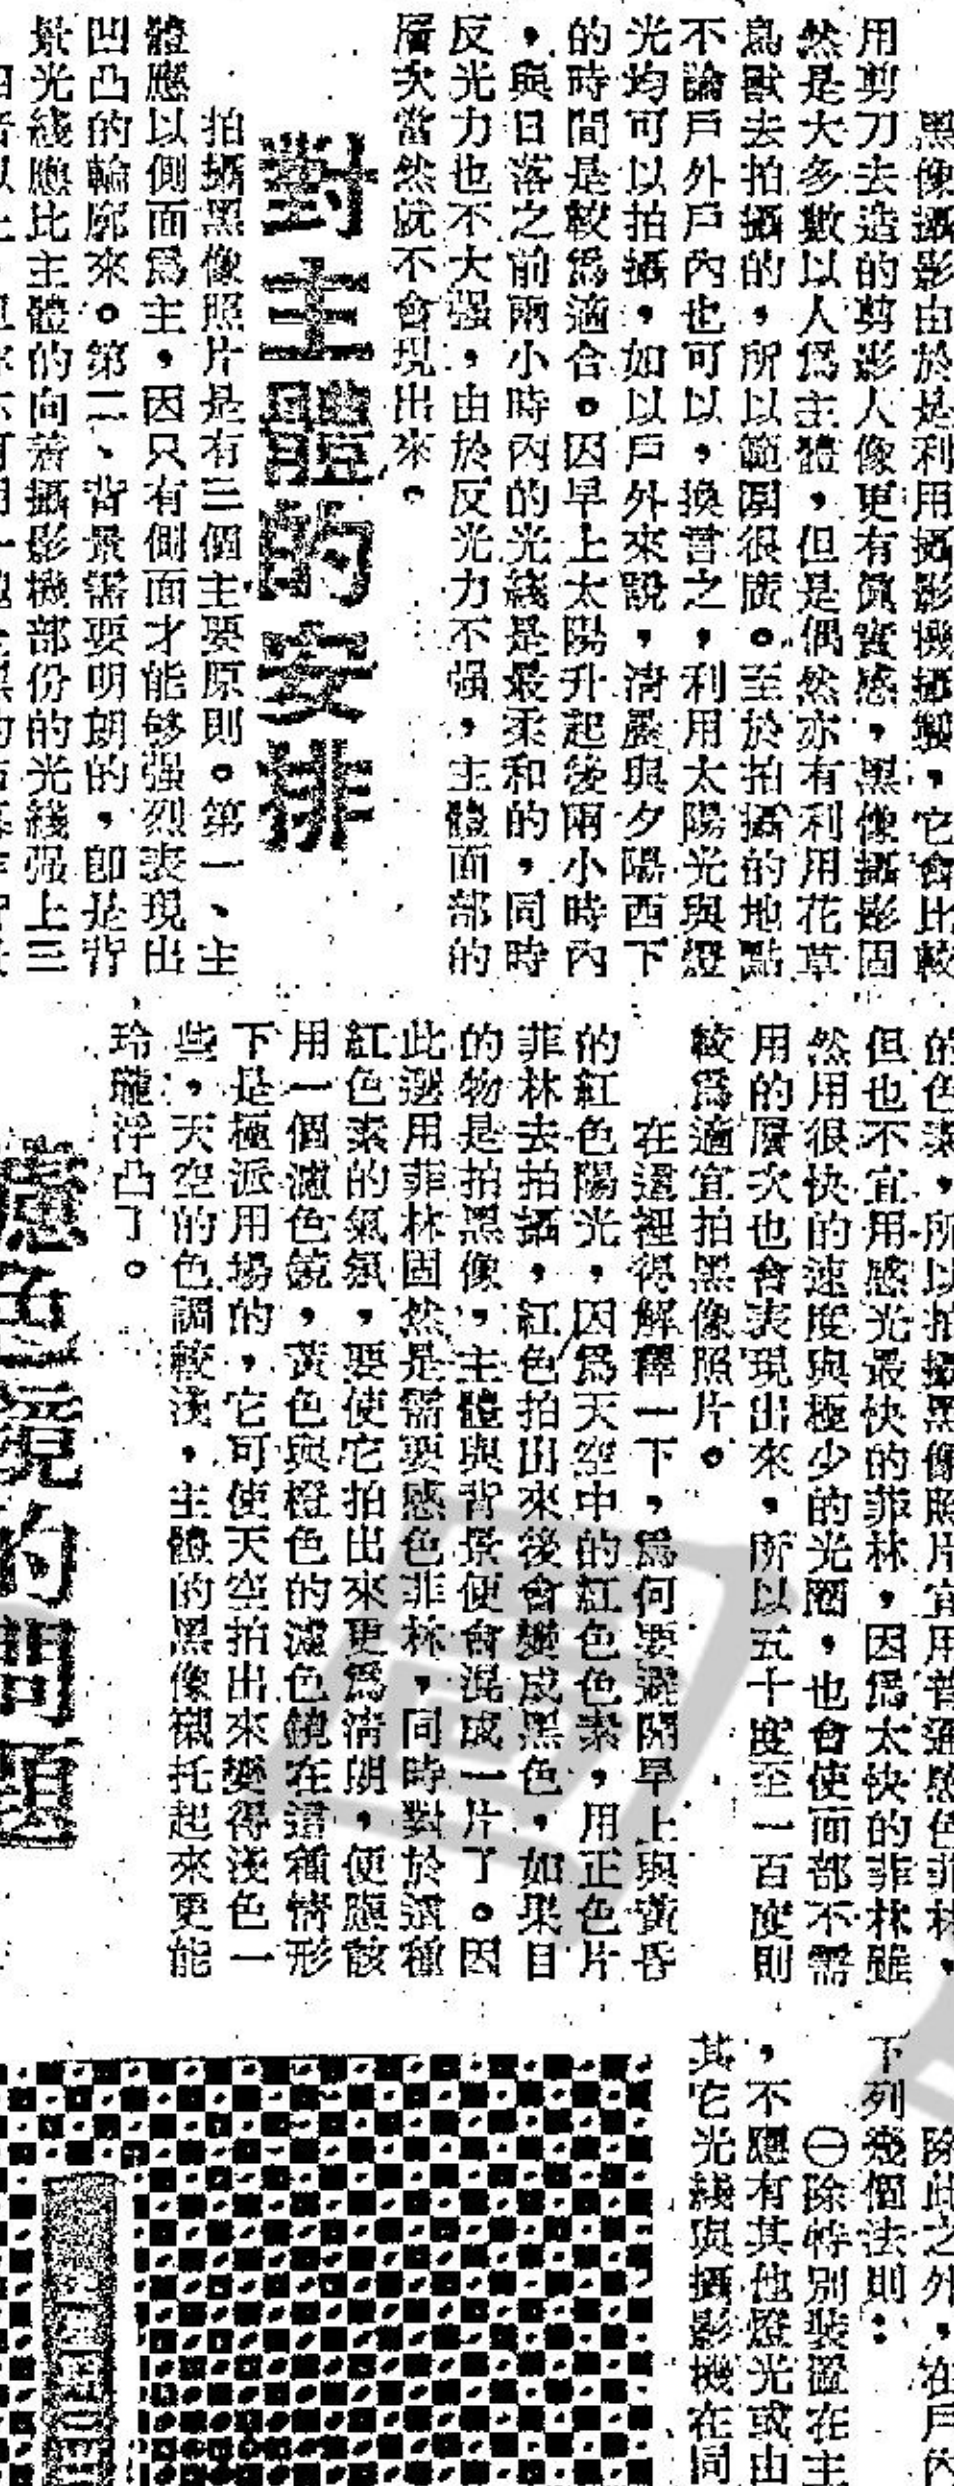 黑像攝影由於是利用攝影機攝製，它會比較
用剪刀去造的剪影人像更有眞實感，黑像攝影固
然是大多數以人爲主體，但是偶然亦有利用花草
鳥獸去拍攝的，所以範圍很廣。至於拍攝的地點
不論戶外戶內也可以，換言之，利用太陽光與燈
光均可以拍攝，如以戶外來說，清晨與夕陽西下
的時間是較爲適合。因早上太陽升起後兩小時內
，與日落之前兩小時內的光綫是最柔和的，同時
反光力也不大强，由於反光力不强，主體面部的
層次當然就不會現出來。
對主體的安排
拍攝黑像照片是有三個主要原則。第一、主
體應以側面爲主，因只有側面才能够强烈表現出
凹凸的輪廓來。第二、背景需要明朗的，卽是背
景光綫應比主體的向着攝影機部份的光綫强上三
的色素，所以拍攝黑像照片宜用普通感色菲林，
但也不宜用感光最快的菲林，因爲太快的菲林雖
然用很快的速度與極少的光圈，也會使面部不需
用的層次也會表現出來，所以五十度至一百度則
較爲適宜拍黑像照片。
在這裡得解釋一下，爲何要避開早上與黃昏
的紅色陽光，因爲天空中的紅色色素，用正色片
菲林去拍攝，紅色拍出來後會變成黑色，如果目
的物是拍黑像，主體與背景便會混成一片了。因
此選用菲林固然是需要感色菲林，同時對於這種
紅色素的氣氛，要使它拍出來更爲清朗，便應該
用一個濾色鏡，黃色與橙色的濾色鏡在這種情形
下是極派用場的，它可使天空拍出來變得淺色一
些，天空的色調較淺，主體的黑像襯托起來更能
玲瓏浮凸了。
濾色鏡的問題
除此之外，在戶內
下列幾個法則：
㊀除特別裝置在主
，不應有其他燈光或由
其它光綫與攝影機在同
圖